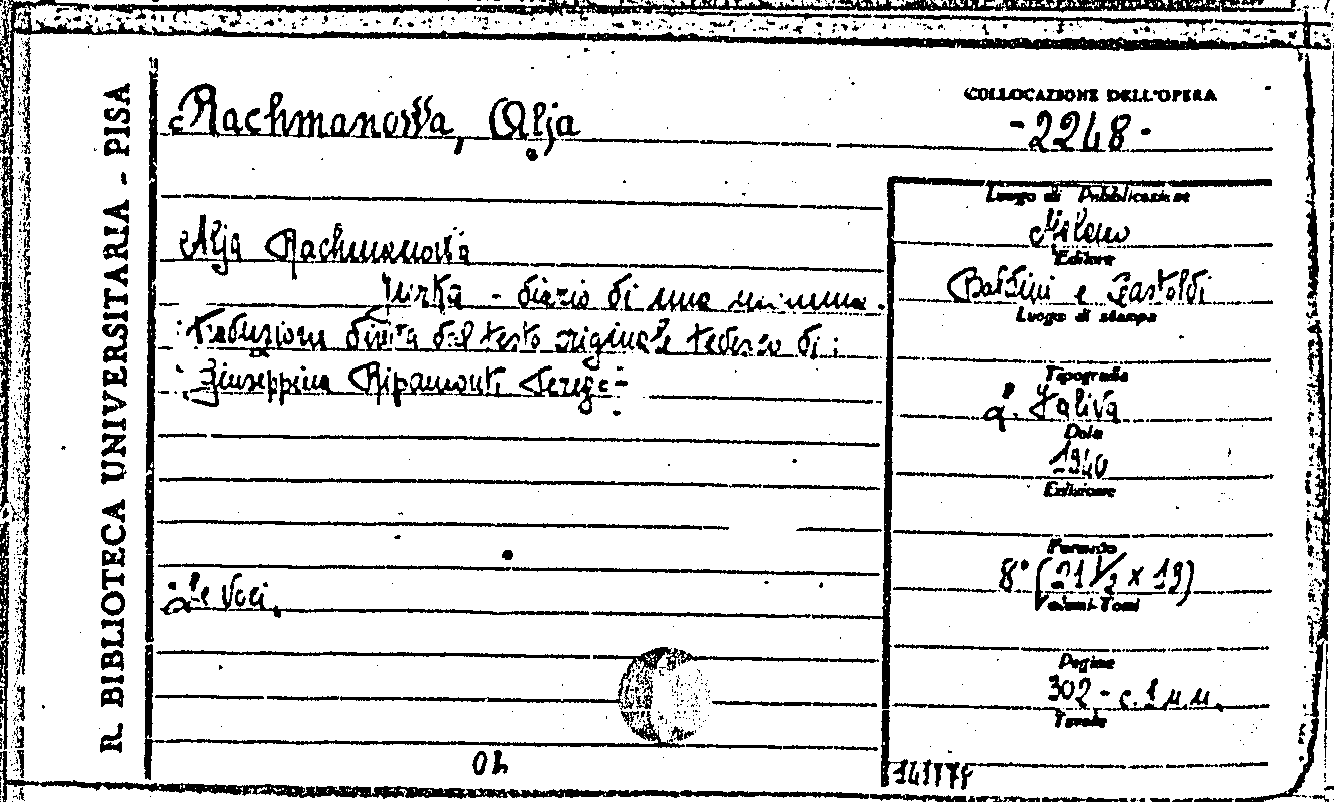 R. BIBLIOTECA UNIVERSITARIA - PISA
Rachmanowa, Alja
COLLOCAZIONE DELL'OPERA
-2248-
Alja Rachmanowa
Jurka - diario di una mamma.
Traduzione diretta dal testo originale tedesco di:
Giuseppina Ripamonti Perego
"Le Voci"
Luogo di Pubblicazione
Milano
Editore
Baldini e Castoldi
Luogo di stampa
Tipografia
Saliva
Data
1940
Edizione
Formato
8° (21 1/2 x 19)
Volumi-Tomi
Pagine
302 - c. 1 n. n.
Tavole